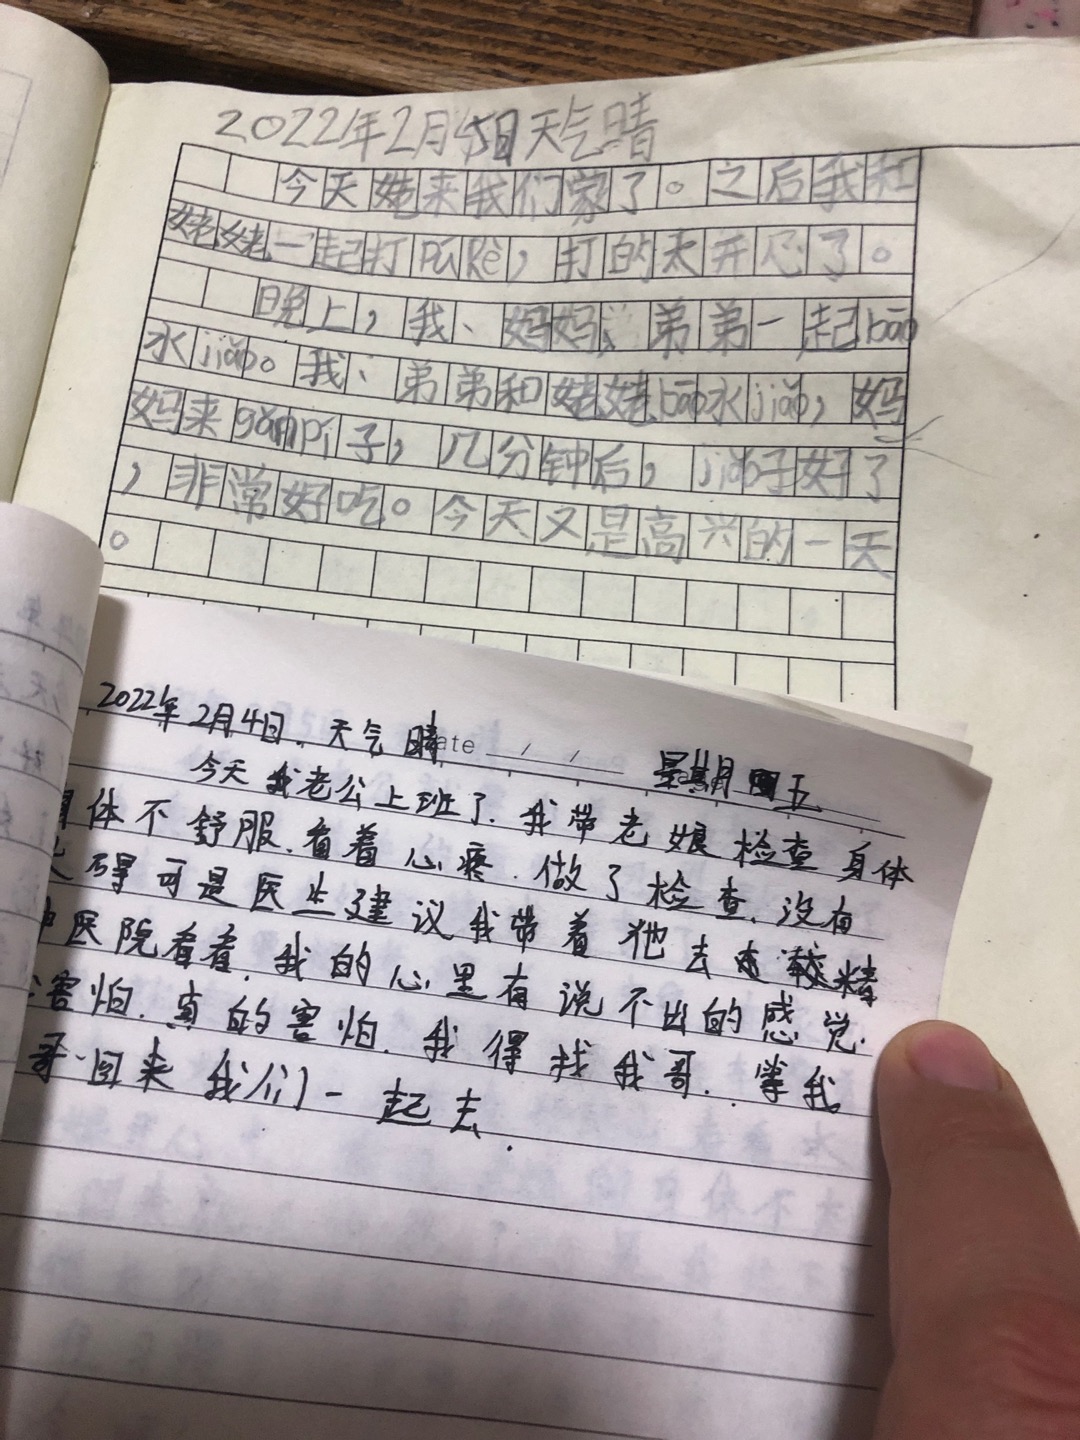 2022年2月4日天气晴
今天姥来我们家了。之后我和
姥姥一起打pūkè，打的太开心了。
晚上，我、妈妈、弟弟一起bāo
水jiǎo。我、弟弟和姥姥bāo水jiǎo，妈
妈来gǎnpí子，几分钟后，jiǎo子好了
，非常好吃。今天又是高兴的一天
。
2022年2月4日.天气晴 Date / / 星期五
今天我老公上班了.我带老娘检查身体
身体不舒服.看着心疼.做了检查.没有
大碍可是医生建议我带着他去精
神医院看看.我的心里有说不出的感觉.
害怕.真的害怕.我得找我哥.等我
哥回来我们一起去.